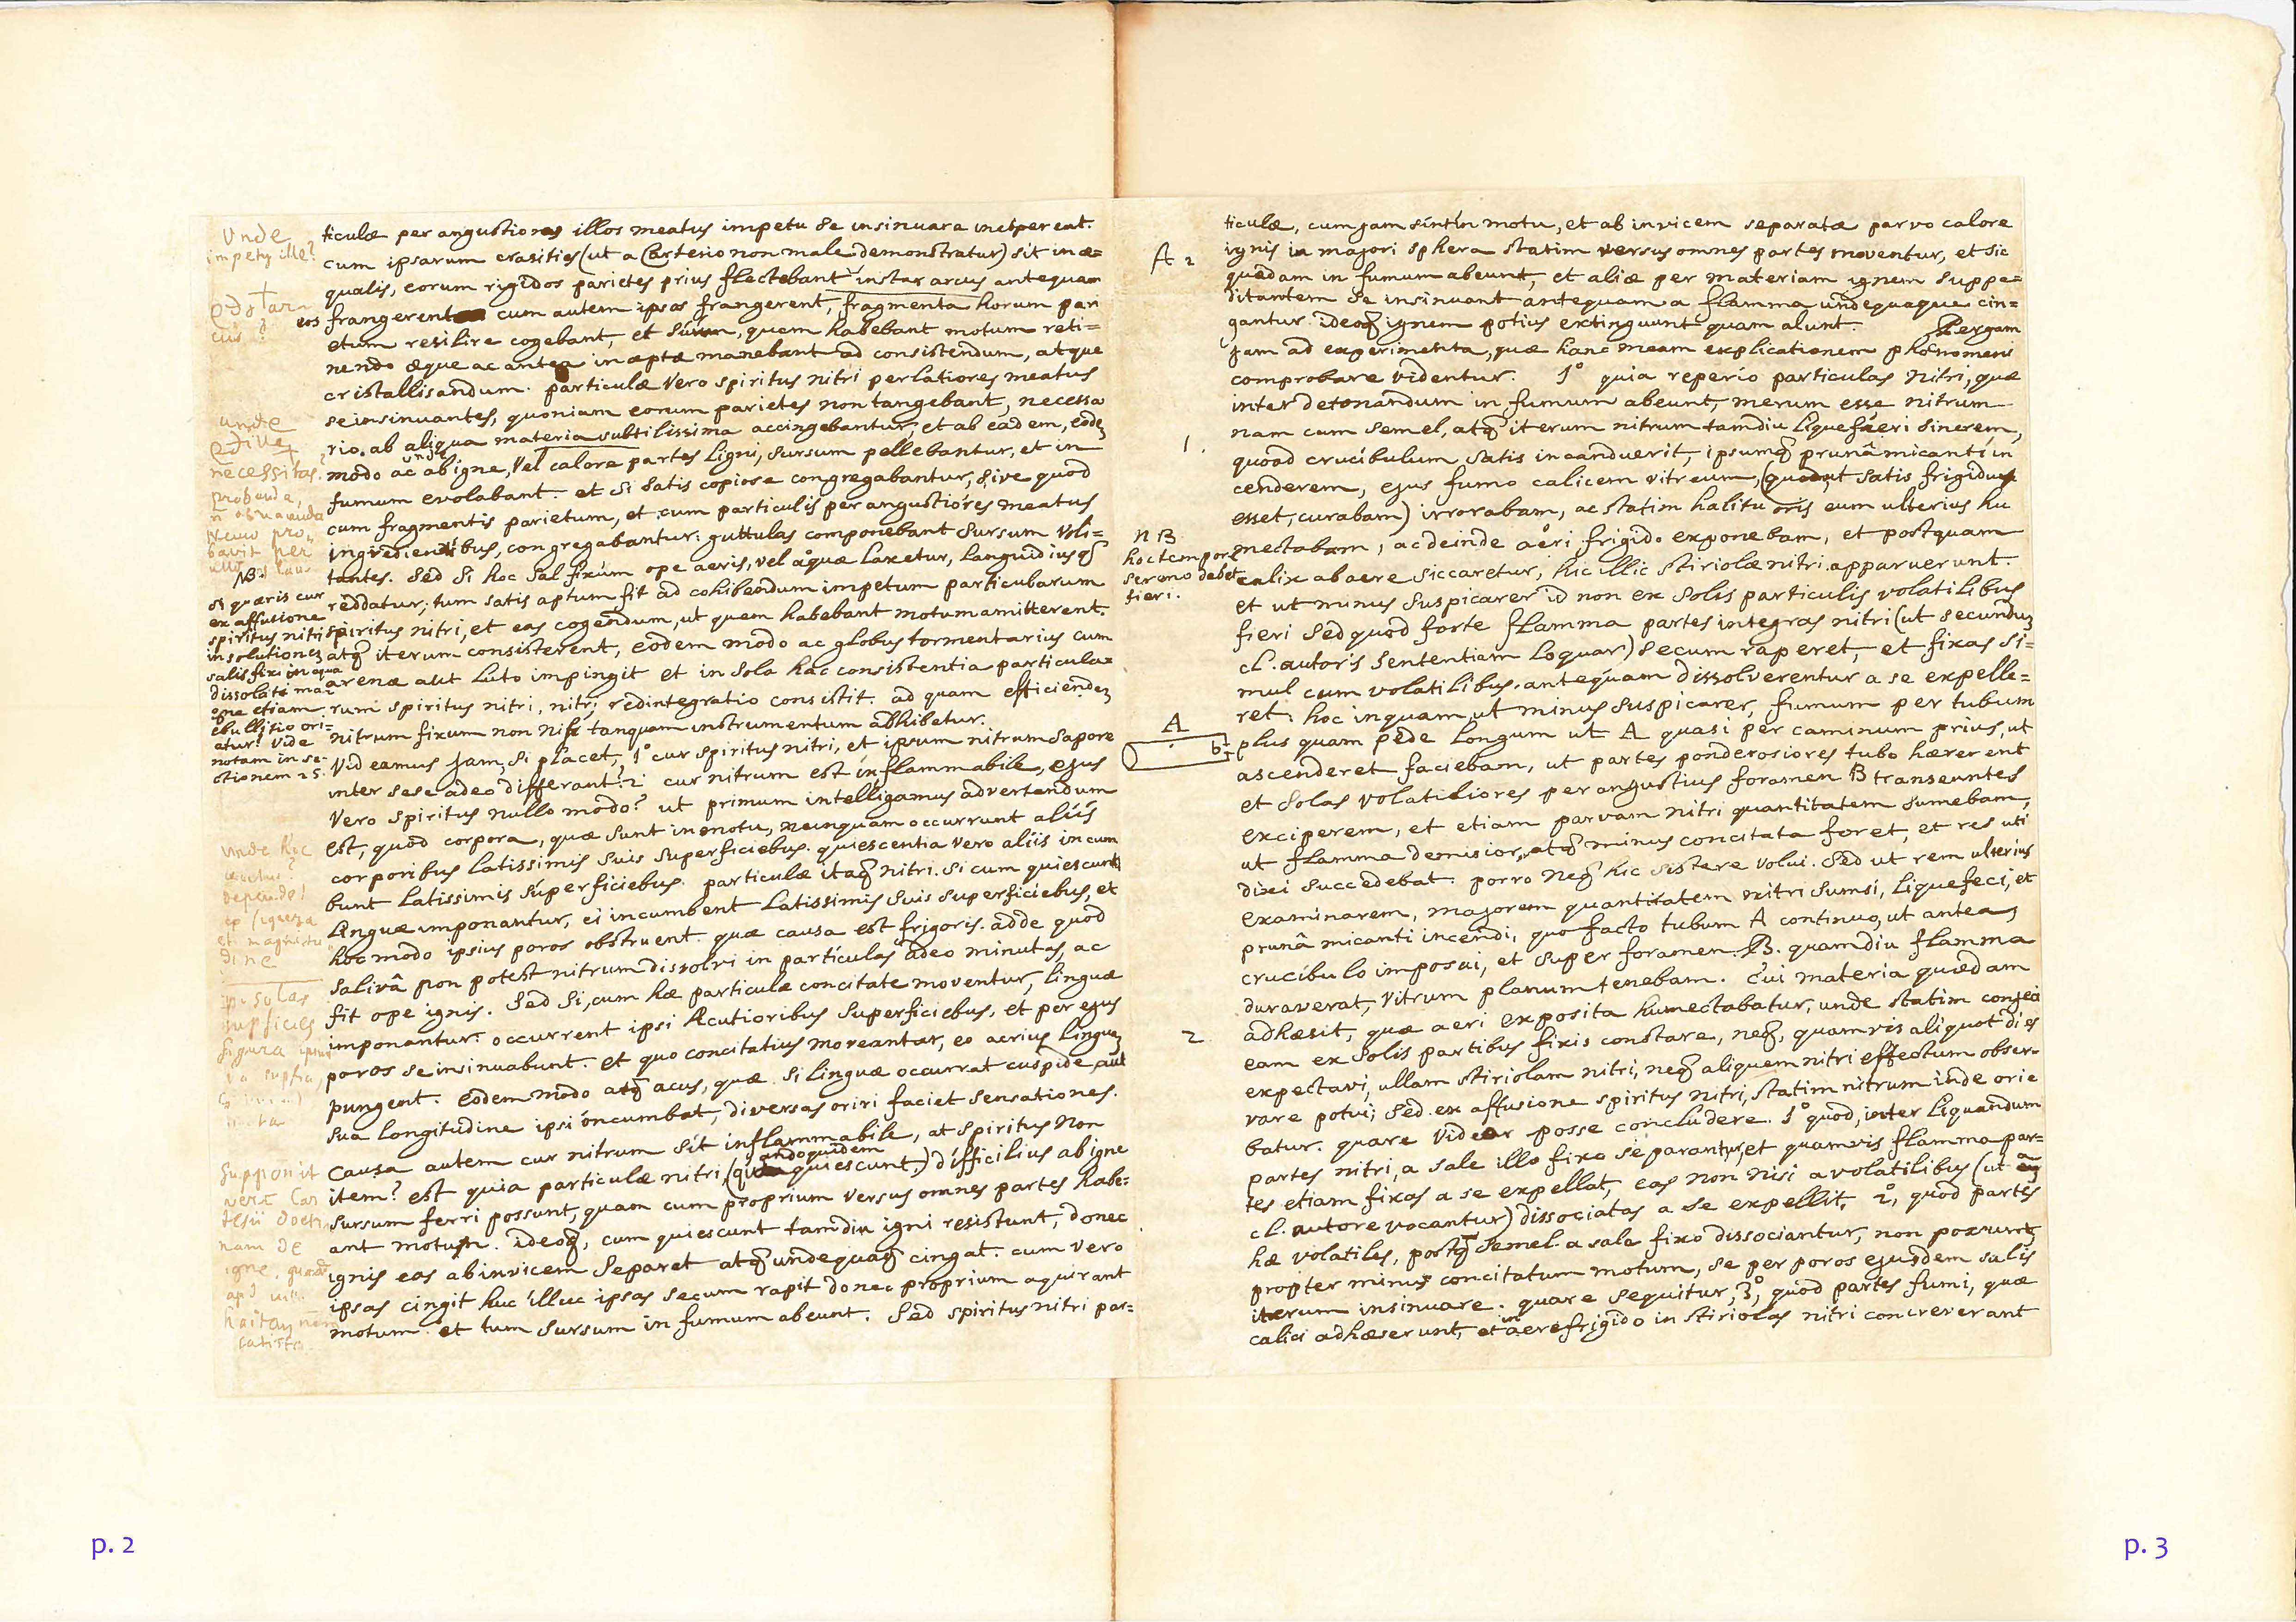 ticulæ per angustiores illos meatus impetu se insinuare inciperent.
cum ipsarum crasities (ut a Cartesio non male demonstratur) sit inæ=
qualis, eorum rigidos parietes prius flectebant instar arcus antequam
eos frangerent cum autem ipsos frangerent, fragmenta horum pari
etum resilire cogebant, et suum, quem habebant motum reti=
nendo æque ac antea inæptæ manebant ad consistendum, atque
cristallisandum. particulæ vero spiritus nitri per latiores meatus
se insinuantes, quoniam eorum parietes non tangebant, necessa
rio ab aliqua materia subtilissima accingebantur, et ab eadem, eodẽ
modo ac ab igne, vel calore partes ligni, sursum pellebantur, et in
fumum evolabant. et si satis copiose congregabantur, sive quod
cum fragmentis parietum, et cum particulis per angustiores meatus
ingredientibus, congregabantur: guttulas componebant sursum voli=
tantes. Sed si hoc sal fixum ope aeris, vel aquæ laxetur, languidiusq̃
reddatur, tum satis aptum fit ad cohibendum impetum particularum
spiritus nitri, et eas cogendum, ut quem habebant motum amitterent,
atq̃ iterum consisterent, eodem modo ac globus tormentarius cum
arenæ aut luto impingit et in sola hac consistentia particula=
rum spiritus nitri, nitri redintegratio consistit. ad quam efficiendẽ
nitrum fixum non nisi tanquam instrumentum adhibetur.
Videamus jam, si placet, 1° cur spiritus nitri, et ipsum nitrum sapore
inter sese adeo differant? 2° cur nitrum est inflammabile, ejus
vero spiritus nullo modo? ut primum intelligamus advertendum
est, quod corpora, quæ sunt in motu, nunquam occurrunt aliis
corporibus latissimis suis superficiebus. quiescentia vero aliis incum
bunt latissimis superficiebus. particulæ itaq̃ nitri. si cum quiescunt
linguæ imponantur, ei incumbent latissimis suis superficiebus, et
hoc modo ipsius poros obstruent. quæ causa est frigoris. adde quod
salivâ non potest nitrum dissolvi in particulas adeo minutas, ac
fit ope ignis. Sed si, cum hæ particulæ concitate moventur, linguæ
imponantur: occurrent ipsi acutioribus superficiebus, et per ejus
poros se insinuabunt. et quo concitatius moveantur, eo acrius linguã
pungent. Eodem modo atq̃ acus, quæ si linguæ occurrat cuspide, aut
sua longitudine ipsi incumbat, diversas oriri faciet sensationes.
Causa autem cur nitrum sit inflammabile, at spiritus non
andoquidem
item? est quia particulæ nitri (qu quiescunt.) difficilius ab igne
sursum ferri possunt, quam cum proprium versus omnes partes habe=
ant motum. ideoq̃, cum quiescunt tamdiu igni resistunt, donec
ignis eas ab invicem separet atq̃ undequaq̃ cingat. cum vero
ipsas cingit huc illuc ipsas secum rapit donec proprium aquirant
motum et tum sursum in fumum abeunt. Sed spiritus nitri par=
Unde
impetus ille?
unde
necessitas
NB.
si quæris cur
ex affusione
spiritus nitri
in solutionẽ
salis fixi in aqua
dissoluti
etiam
ebullitio ori=
atur? vide
notam in se-
ctionem 25.
Supponit
igne
ticulæ, cum jam sint in motu, et ab invicem separatæ parvo calore
ignis in majori sphera statim versus omnes partes moventur, et sic
quædam in fumum abeunt, et aliæ per materiam ignem suppe=
ditantem se insinuant antequam a flamma undequaque cin=
gantur ideoq̃ ignem potius extinguunt quam alunt. Pergam
jam ad experimenta, quæ hanc meam explicationem phœnomeni
comprobare videntur. 1° quia reperio particulas nitri, quæ
inter detonandum in fumum abeunt, merum esse nitrum
nam cum semel, atq̃ iterum nitrum tamdiu liquefieri sinerem,
quoad crucibulum satis incanduerit, ipsumq̃ prunâ micanti in
cenderem, ejus fumo calicem vitreum, (quod ut satis frigidus
esset, curabam) irrorabam, ac statim halitu oris eum ulterius hu
mectabam, ac deinde aëri frigido exponebam, et postquam
calix ab aere siccaretur, hic illic stiriolæ nitri apparuerunt.
et ut minus suspicarer id non ex solis particulis volatilibus
fieri sed quod forte flamma partes integras nitri (ut secundũ
cl. autoris sententiam loquar) secum raperet, et fixas si=
mul cum volatilibus, antequam dissolverentur a se expelle=
ret, hoc inquam, ut minus suspicarer, fumum per tubum
plus quam pede longum ut A quasi per caminum prius, ut
ascenderet faciebam, ut partes ponderosiores tubo hærerent
et solas volatiliores per angustius foramen B transeuntes
exciperem, et etiam parvam nitri quantitatem sumebam,
ut flamma demisior, atq̃ minus concitata foret, et res uti
dixi succedebat. porro neq̃ hic sistere volui. Sed ut rem ulterius
examinarem, majorem quantitatem nitri sumsi, liquefeci, et
prunâ micanti incendi, quo facto tubum A continuo, ut antea,
crucibulo imposui, et super foramen B. quamdiu flamma
duraverat, vitrum planum tenebam. Cui materia quædam
adhæsit, quæ aeri exposita humectabatur, unde statim conjeci
eam ex solis partibus fixis constare, neq̃, quamvis aliquot dies
expectavi, ullam stiriolam nitri, neq̃ aliquem nitri effectum obser-
vare potui; sed ex affusione spiritus nitri, statim nitrum inde orie
batur. quare videor posse concludere. 1° quod, inter liquandum
partes nitri, a sale illo fixo separantur, et quamvis flamma par=
tes etiam fixas a se expellat, eas non nisi a volatilibus (ut a
cl. autore vocantur) dissociatas a se expellit. 2°, quod partes
hæ volatiles, postq̃ semel a sale fixo dissociantur, non possunt
propter minus concitatum motum, se per poros ejusdem salis
iterum insinuare. quare sequitur, 3°, quod partes fumi, quæ
calici adhæserunt, et in aere frigido in stiriolas nitri concreverant
A 2
1.
NB
hoc tempore
sereno debet
fieri.
A
b
2
p. 2
p. 3